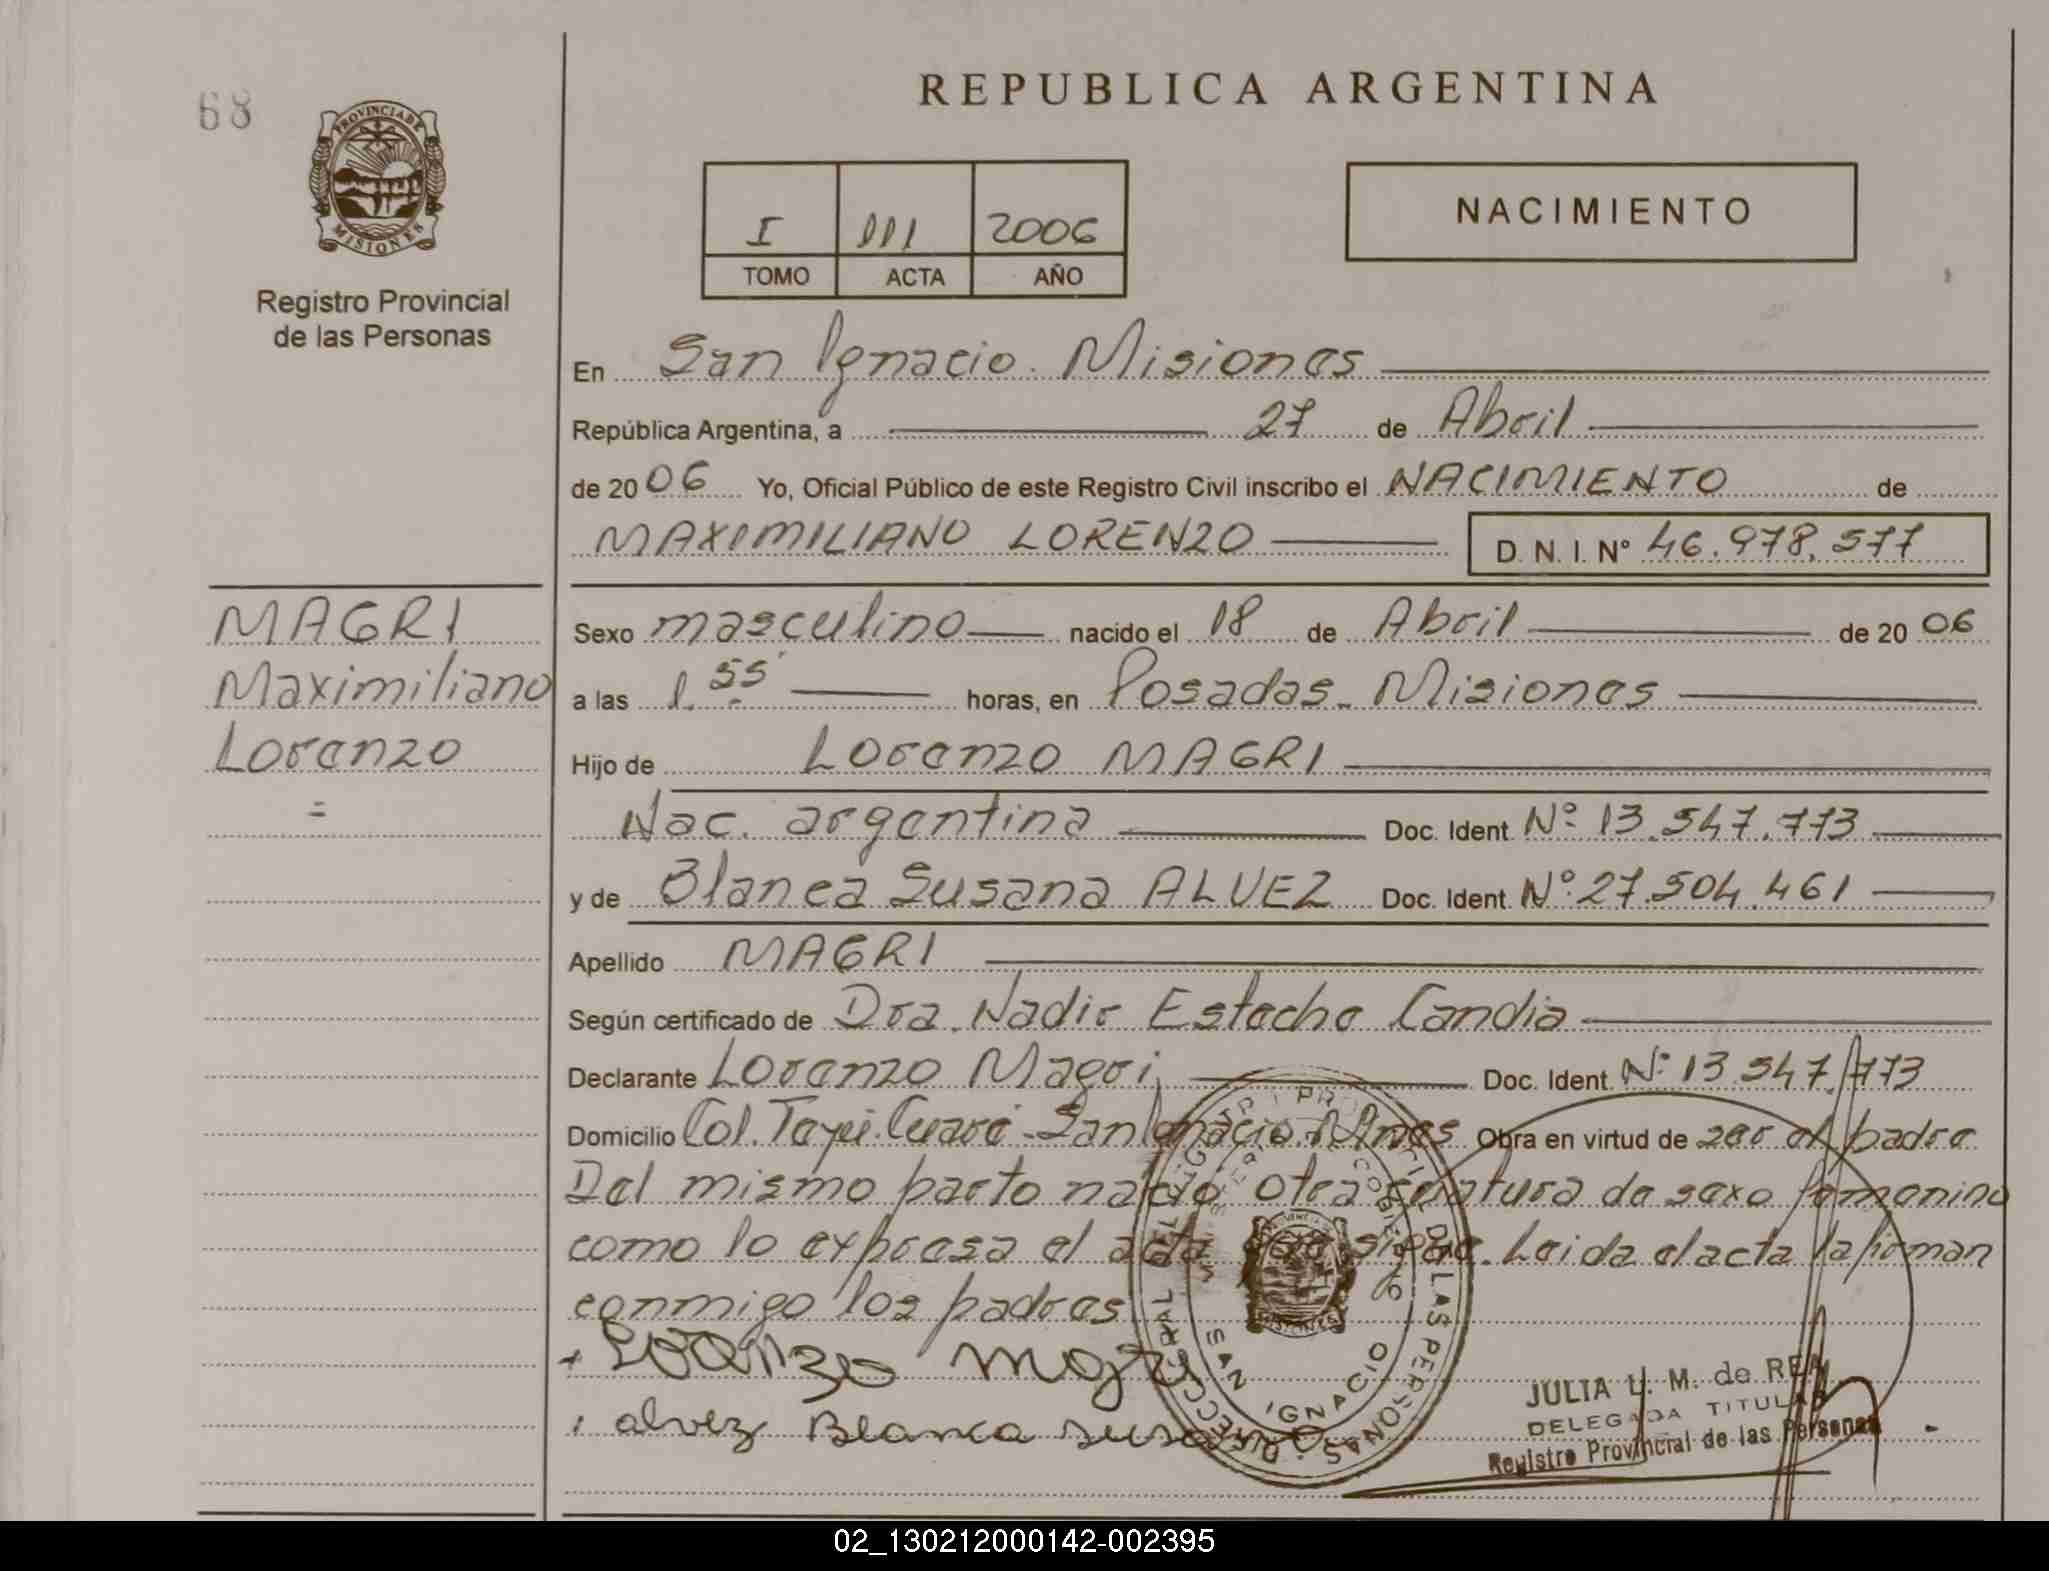 68
PROVINCIA DE
MISIONES
Registro Provincial
de las Personas
REPUBLICA ARGENTINA
I 111 2006
TOMO ACTA AÑO
NACIMIENTO
En San Ignacio. Misiones
República Argentina, a 27 de Abril
de 2006 Yo, Oficial Público de este Registro Civil inscribo el NACIMIENTO de
MAXIMILIANO LORENZO D. N. I. Nº 46.978.577
MAGRI
Maximiliano
Lorenzo
=
Sexo masculino nacido el 18 de Abril de 2006
a las 1.55' horas, en Posadas. Misiones
Hijo de Lorenzo MAGRI
Nac. argentina Doc. Ident. Nº 13.547.773
y de Blanca Susana ALVEZ Doc. Ident. Nº 27.504.461
Apellido MAGRI
Según certificado de Dra. Nadir Candia
Declarante Lorenzo Magri Doc. Ident. Nº 13.547.773
Domicilio Col. Teyú Cuaré - San Ignacio. Mnes Obra en virtud de ser el padre
Del mismo parto nació otra criatura de sexo femenino
como lo expresa el acta que sigue. Leida el acta la firman
conmigo los padres
Lorenzo Magri
alvez Blanca Susana
DIRECCION GENERAL DEL REGISTRO PROVINCIAL DE LAS PERSONAS
SAN IGNACIO
JULIA L. M. de REA
DELEGADA TITULAR
Registro Provincial de las Personas
02_130212000142-002395